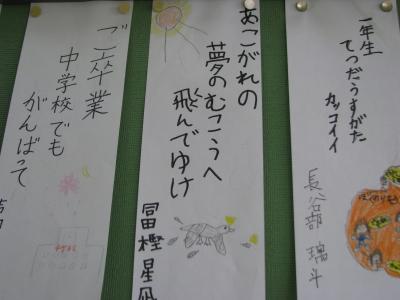 一年生
てつだうすがた
カッコイイ
長谷部 瑞斗
あこがれの
夢のむこうへ
飛んでゆけ
冨樫 星凪
ご卒業
中学校でも
がんばって